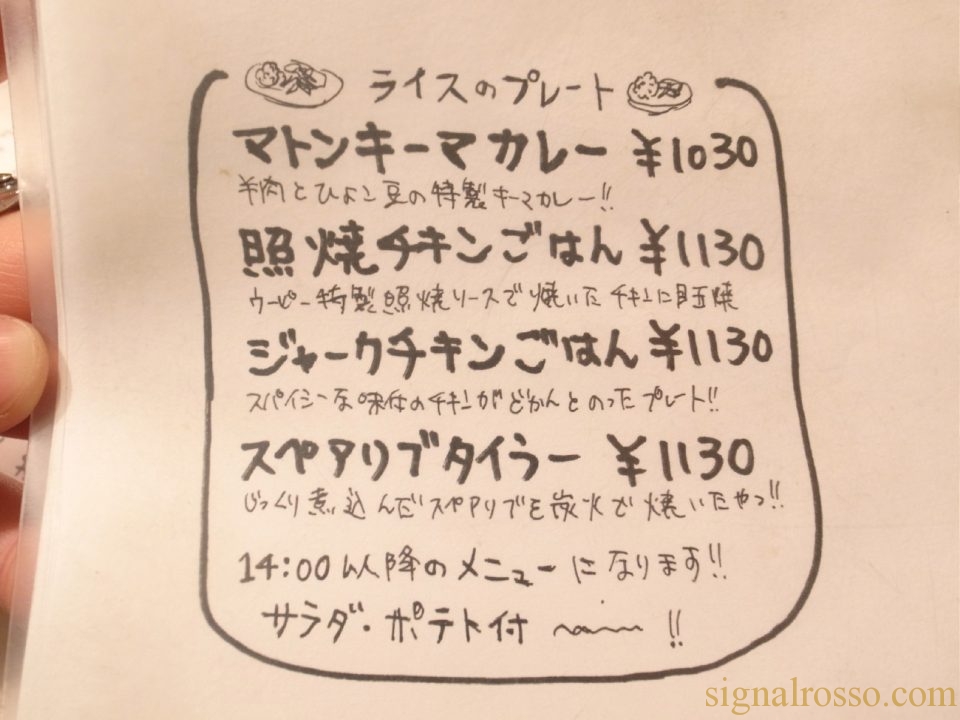 ライスのプレート
マトンキーマカレー ¥1030
羊肉とひよこ豆の特製キーマカレー!!
照焼チキンごはん ¥1130
ウーピー特製照焼ソースで焼いたチキンに目玉焼
ジャークチキンごはん ¥1130
スパイシーな味付のチキンがどかんとのったプレート!!
スペアリブタイラー ¥1130
じっくり煮込んだスペアリブを炭火で焼いたやつ!!
14:00以降のメニューになります!!
サラダ・ポテト付 !!
signalrosso.com